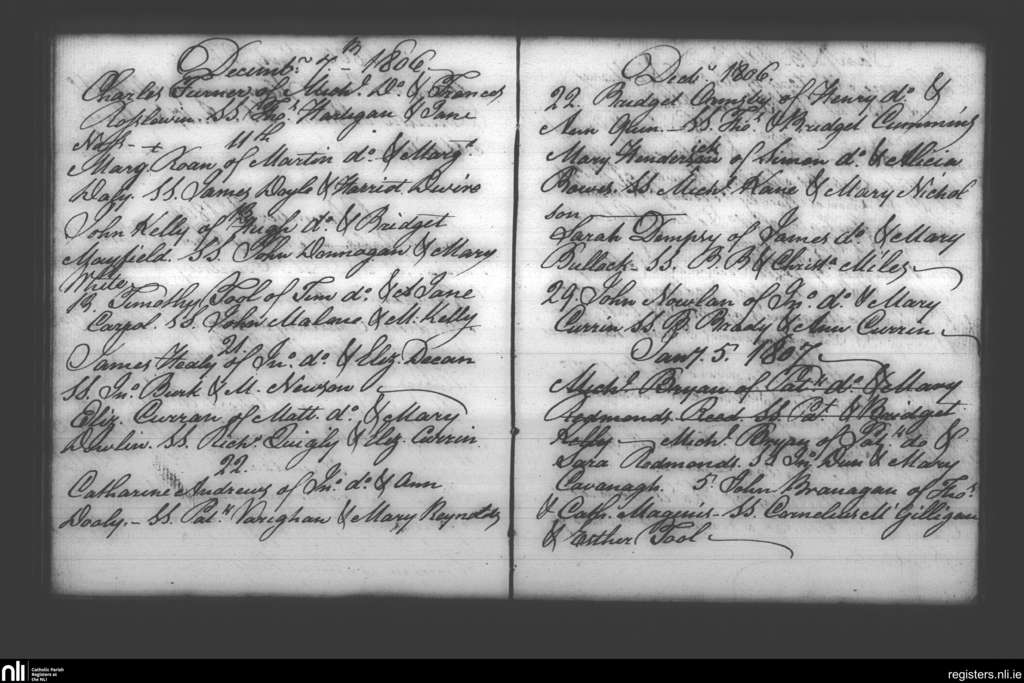 Decembr. 7th 1806
Charles Turner of Michl. Do. & Frances
Roslewin. SS. Thos. Hartigan & Jane
Noss
11th
Marg. Roan of Martin do. & Margt.
Daly. SS. James Doyle & Harriot Dwire
John Kelly of Hugh do. & Bridget
Mayfield. SS. John Donnagan & Mary
White
13. Timothy Tool of Tim do. & Jane
Carpol. SS. John Malone & M. Kelly
21
James Healy of Jno. do. & Eliz. Deean
SS. Jno. Burk & M. Newson
Eliz. Curran of Matt. do. & Mary
Dowlin. SS. Richd. Quigly & Eliz. Currin
22
Catharine Andrews of Jno. do. & Ann
Dooly. SS. Patk. Vaughan & Mary Reynolds
Decbr. 1806.
22. Bridget Ormsby of Henry do. &
Ann Quin SS. Thos. & Bridget Cummins
Mary Henderson of Simon do. & Alicia
Bowes. SS. Michl. Kane & Mary Nichol
son
Sarah Dempsy of James do. & Mary
Bullock SS. B B & Christn. Miles
29. John Nowlan of Jno. do. & Mary
Currin SS. P. Brady & Ann Currin
Jany. 5. 1807.
Michl. Bryan of Patk. do. & Mary
Redmonds Read SS. Pat & Bridget
Kelly Michl. Bryan of Patk. do &
Sara Redmonds. SS Jno. Dun & Mary
Cavanagh 5 John Branagan of Thos.
& Cath. Maginis. SS. Cornelius McGilligan
& Esther Tool
nli
Catholic Parish
Registers at
the NLI
registers.nli.ie